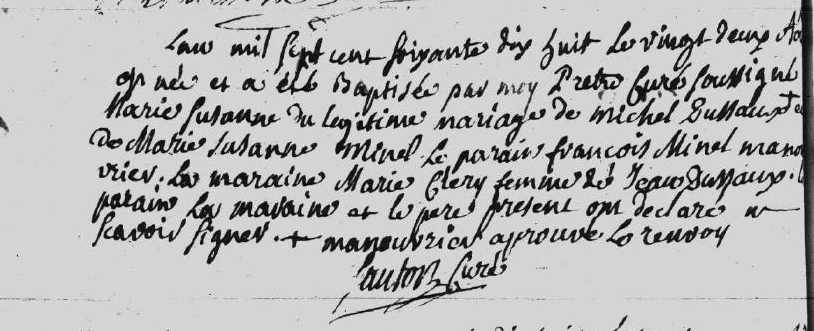 Lan mil sept cent soixante dix huit Le vingt deux
est née et a été Baptisée par moy Pretre Curé soussigné
Marie Susanne du legitime mariage de Michel Dussaux +
De Marie Susanne Minel Le parain françois Minel mano
vrier. La maraine Marie Clery femme de Jean Dussaux.
parain La maraine et le pere present ont declaré
scavoir signer. + manouvrier aprouvé Le renvoy
Curé